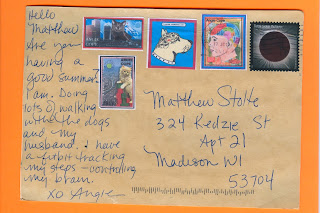 Hello
Matthew
Are you
having a
good summer.
I am. Doing
lots of walking
with the dogs
and my
husband. I have
a fitbit tracking
my steps - controlling
my brain.
XO Angie
Matthew Stolte
324 Kedzie St
Apt 21
Madison WI
53704